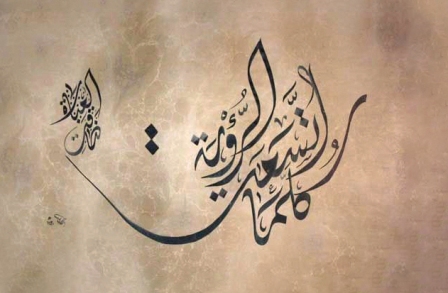 كلما اتسعت الرؤية
ضاقت العبارة